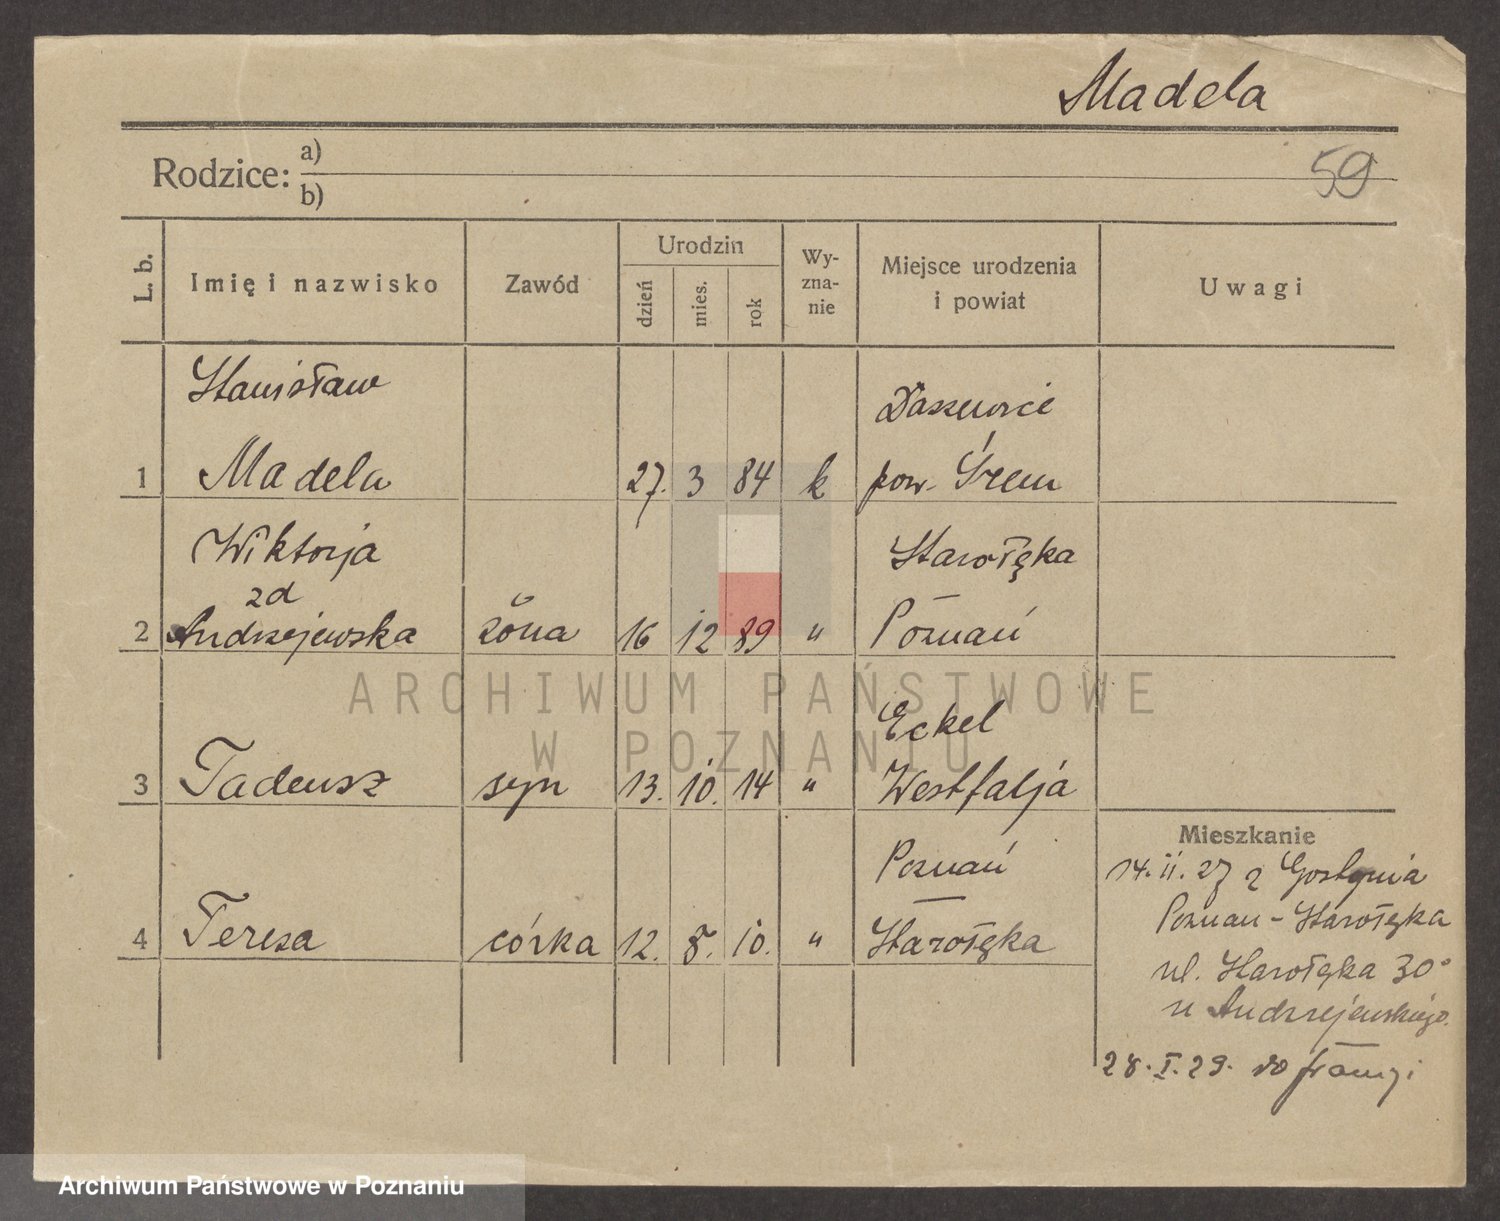 Madela
59
Rodzice: a)
b)
L. b.
Imię i nazwisko
Zawód
Urodzin
dzień
mies.
rok
Wy-
zna-
nie
Miejsce urodzenia
i powiat
Uwagi
Stanisław
Daszewice
1 Madela 27. 3 84 k pow. Śrem
Wiktorja
zd
Starołęka
2 Andrzejewska żona 16 12 89 " Poznań
ARCHIWUM PAŃSTWOWE
W POZNANIU
Eckel
3 Tadeusz syn 13. 10. 14 " Westfalja
Poznań
4 Teresa córka 12. 8. 10. " Starołęka
Mieszkanie
14. II. 27 z Gostynia
Poznan - Starołęka
ul. Starołęka 30
u Andrzejewskiego.
28. I. 29. do
Archiwum Państwowe w Poznaniu